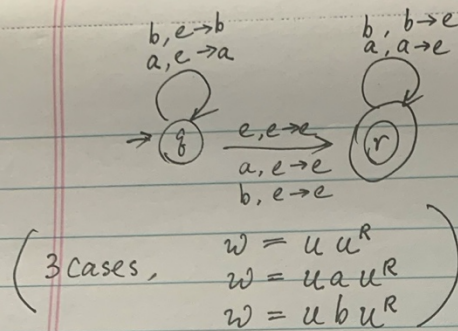 b, e→b
a, e→a
b, b→e
a, a→e
→ q
e, e→e
a, e→e
b, e→e
r
( 3 cases, w = u u^R
w = u a u^R
w = u b u^R )